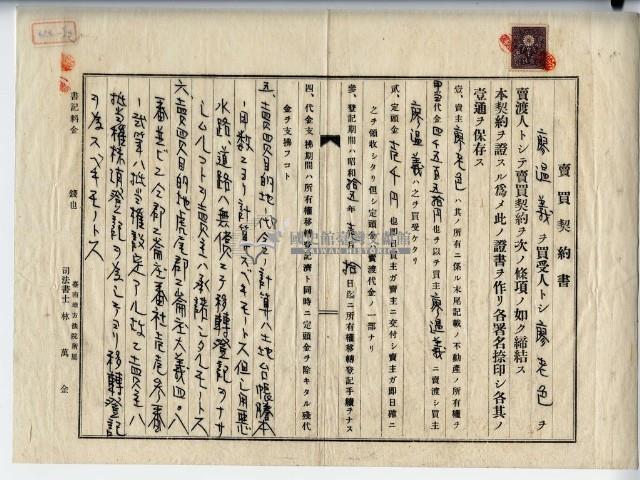 賣買契約書
廖過義ヲ買受人トシ廖老色ヲ
賣渡人トシテ賣買契約ヲ次ノ條項ノ如ク締結ス
本契約ヲ證スル爲メ此ノ證書ヲ作リ各署名捺印シ各其ノ
壹通ヲ保存ス
壹、賣主廖老色ハ其ノ所有ニ係ル末尾記載ノ不動產ノ所有權ヲ
代金四千五百五拾円也ヲ以テ買主廖過義ニ賣渡シ買主
廖過義ハ之ヲ買受ケタリ
貳、定頭金壱千円也即日買主ガ賣主ニ交付シ賣主ガ即日確ニ
之ヲ領收シタリ但シ定頭金ハ賣渡代金ノ一部ナリ
參、登記期間ハ昭和拾五年壱月拾日迄ニ所有權移轉登記手續ヲナス
四、代金支拂期間ハ所有權移轉登記濟ト同時ニ定頭金ヲ除キタル殘代
金ヲ支拂フコト
五、賣買目的地代金ノ計算ハ土地台帳謄本
ノ甲数ニヨリ計算スベキモノトス但シ用悪
水路道路ハ無償ニテ移轉登記ヲナサ
シムルコトヲ賣主ハ承諾シタルモノトス
六、賣買目的地虎尾郡二崙庄大義四〇八
番並ビニ仝郡二崙庄番社壱壱參番
ノ弐第八抵当權設定アル故ニ賣主ハ
抵当權抹消登記ヲ為シテヨリ移轉登記
ヲ為スベキモノトス
書記料金 錢也
臺南地方法院所屬
司法書士 林萬金
國史館臺灣文獻館